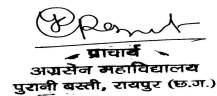 प्राचार्य
अग्रसेन महाविद्यालय
पुरानी बस्ती, रायपुर (छ.ग.)